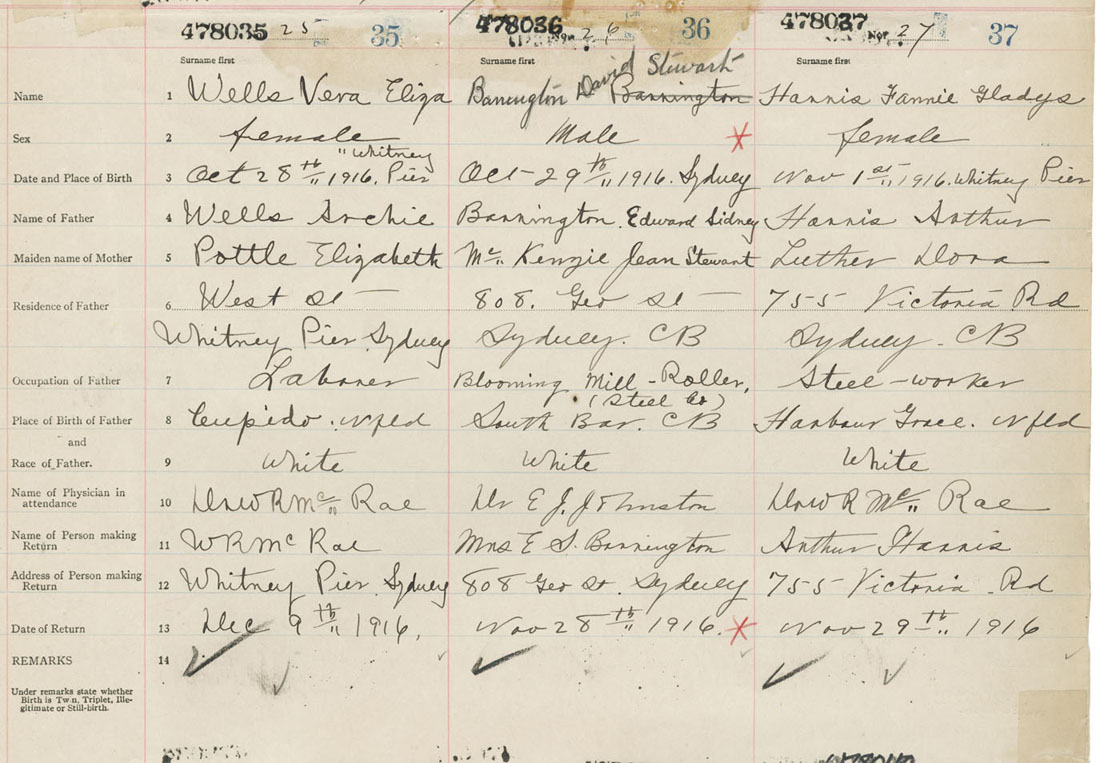 478035 25 35 478036 26 36 478037 Nor 27 37
Surname first Surname first Surname first
David Stewart
Name 1 Wells Vera Eliza Barrington Barrington Hannis Fannie Gladys
Sex 2 female Male female
"Whitney
Date and Place of Birth 3 Oct 28th 1916. Pier Oct 29th 1916. Sydney Nov 1st 1916. Whitney Pier
Name of Father 4 Wells Archie Barrington. Edward Sidney Hannis Arthur
Maiden name of Mother 5 Pottle Elizabeth Mc Kenzie Jean Stewart Luther Dora
Residence of Father 6 West St 808. Geo St 755 Victoria Rd
Whitney Pier Sydney Sydney. CB Sydney. CB
Occupation of Father 7 Laborer Blooming Mill - Roller, Steel-worker
(Steel Co)
Place of Birth of Father 8 Cupido. Nfld South Bar. CB Harbour Grace. Nfld
and
Race of Father. 9 White White White
Name of Physician in attendance 10 Dr W R Mc Rae Dr E J. Johnston Dr W R Mc Rae
Name of Person making Return 11 W R Mc Rae Mrs E S. Barrington Arthur Hannis
Address of Person making Return 12 Whitney Pier. Sydney 808 Geo St. Sydney 755 Victoria Rd
Date of Return 13 Dec 9th 1916. Nov 28th 1916. Nov 29th 1916
REMARKS 14
Under remarks state whether
Birth is Twin, Triplet, Ille-
gitimate or Still-birth.